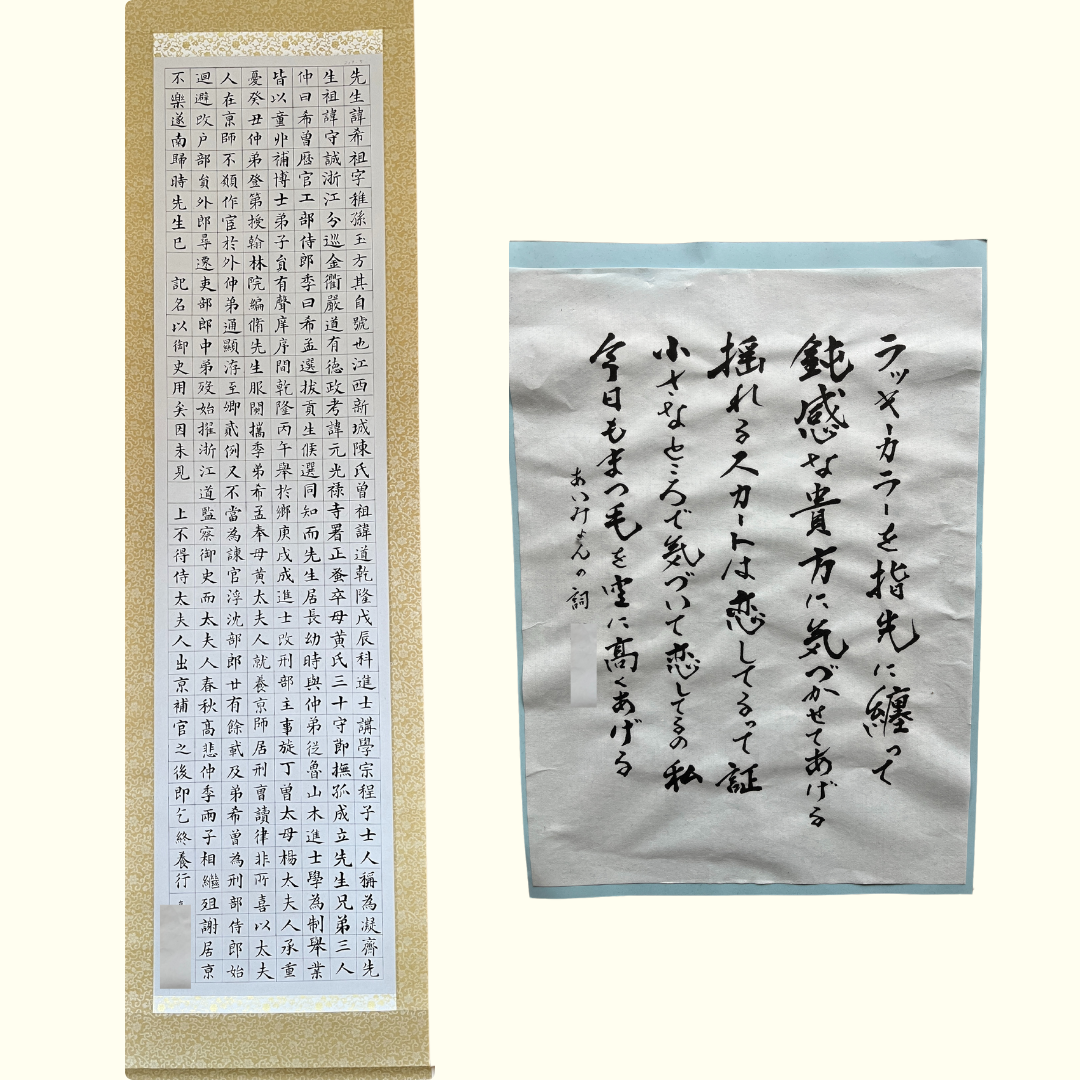 先生諱希祖字稚孫玉方其自號也江西新城陳氏曾祖諱道乾隆戊辰科進士講學宗程子士人稱為凝齋先
生祖諱守誠浙江分巡金衢嚴道有德政考諱元光禄寺署正蚤卒母黃氏三十守節撫孤成立先生兄弟三人
仲曰希曾歷官工部侍郎季曰希孟選拔貢生候選同知而先生居長幼時與仲弟從魯山木進士學為制舉業
皆以童丱補博士弟子員有聲庠序間乾隆丙午舉於鄉庚戌成進士改刑部主事旋丁曾太母楊太夫人承重
憂癸丑仲弟登第授翰林院編脩先生服闋攜季弟希孟奉母黃太夫人就養京師居刑曹讀律非所喜以太夫
人在京師不願作宦於外仲弟通顯洊至卿貳例又不當為諫官浮沈部郎廿有餘載及弟希曾為刑部侍郎始
迴避改戶部員外郎尋遷吏部郎中弟歿始擢浙江道監察御史而太夫人春秋高悲仲季兩子相繼殂謝居京
不樂遂南歸時先生已 記名以御史用矣因未見 上不得侍太夫人出京補官之後即乞終養行
ラッキーカラーを指先に纏って
鈍感な貴方に気づかせてあげる
揺れるスカートは恋してるって証
小さなところで気づいて恋してるの私
今日もまつ毛を空に高くあげる
あいみょんの詞